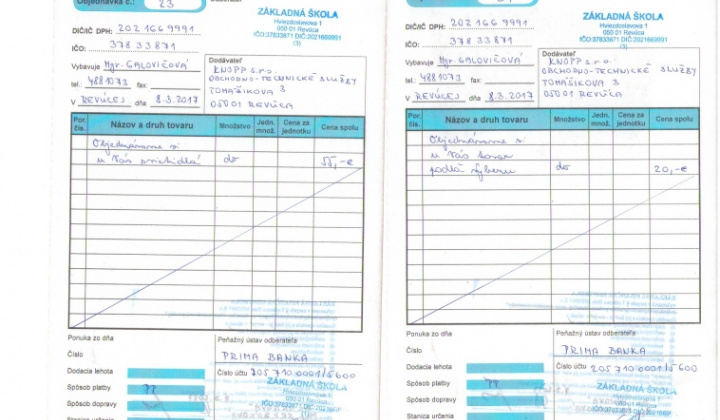 Objednávka č.: 23
ZÁKLADNÁ ŠKOLA
Hviezdoslavova 1
050 01 Revúca
IČO:37833871 DIČ:2021669991
(3)
DIČ/IČ DPH: 202 166 9991
IČO: 378 33 871
Vybavuje Mgr. GALOVIČOVÁ
tel.: 4881073 fax:
V REVÚCEJ dňa 8.3.2017
Dodávateľ
KNOPP s.r.o.
OBCHODNO-TECHNICKÉ SLUŽBY
TOMÁŠIKOVA 3
050 01 REVÚCA
Por. čís. Názov a druh tovaru Množstvo Jedn. množ. Cena za jednotku Cena spolu
Objednávame si
u Vás priehidlá do 55,-€
Ponuka zo dňa
Číslo
Dodacia lehota
Spôsob platby
Spôsob dopravy
Stanica určenia
Peňažný ústav odberateľa
PRIMA BANKA
Číslo účtu 205 710 0001/5600
ZÁKLADNÁ ŠKOLA
ZÁKLADNÁ ŠKOLA
Hviezdoslavova 1
050 01 Revúca
IČO:37833871 DIČ:2021669991
(3)
DIČ/IČ DPH: 202 166 9991
IČO: 378 33 871
Vybavuje Mgr. GALOVIČOVÁ
tel.: 4881073 fax:
V REVÚCEJ dňa 8.3.2017
Dodávateľ
KNOPP s.r.o.
OBCHODNO-TECHNICKÉ SLUŽBY
TOMÁŠIKOVA 3
050 01 REVÚCA
Por. čís. Názov a druh tovaru Množstvo Jedn. množ. Cena za jednotku Cena spolu
Objednávame si
u Vás tovar
podľa výberu do 20,-€
Ponuka zo dňa
Číslo
Dodacia lehota
Spôsob platby
Spôsob dopravy
Stanica určenia
Peňažný ústav odberateľa
PRIMA BANKA
Číslo účtu 205 710 0001/5600
ZÁKLADNÁ ŠKOLA